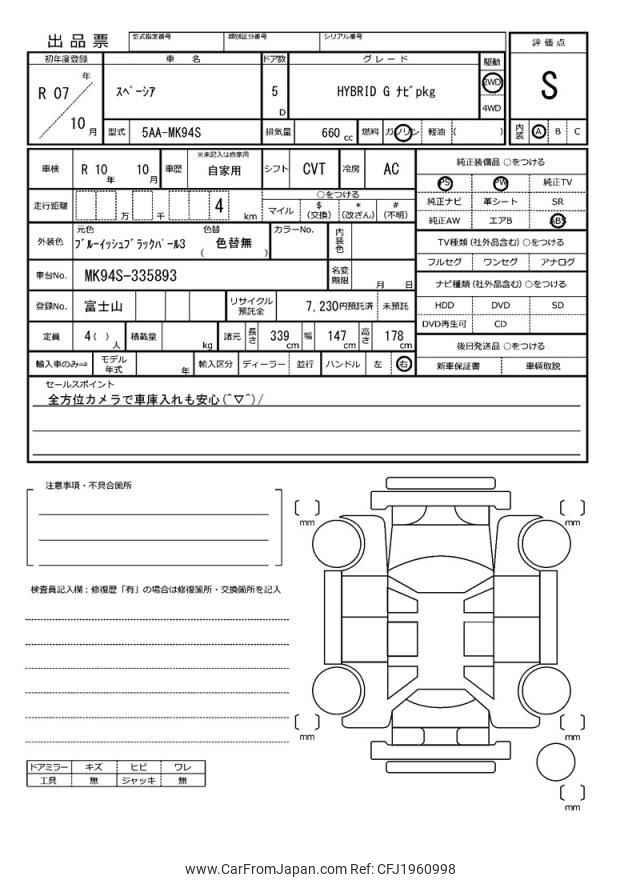 出品票
型式指定番号 類別区分番号 シリアル番号
初年度登録 車 名 ドア数 グレード 駆動 評価点
R 07 年 10 月
スペーシア
5 D
HYBRID G ナビpkg
2WD
4WD
S
型式 5AA-MK94S 排気量 660 cc 燃料 ガソリン 軽油 ( )
内装 A B C
車検 R 10 年 10 月 車歴 ※未記入は自家用 自家用 シフト CVT 冷房 AC
走行距離 万 千 4 km
○をつける
マイル $ (交換) * (改ざん) # (不明)
外装色 元色 ブルーイッシュブラックパール3 色替 ( 色替無 ) カラーNo. 内装色
車台No. MK94S-335893 名変期限 月 日
登録No. 富士山 リサイクル預託金 7,230円預託済 未預託
定員 4 ( ) 人 積載量 kg 諸元 長さ 339 cm 幅 147 cm 高さ 178 cm
輸入車のみ⇒ モデル年式 年 輸入区分 ディーラー 並行 ハンドル 左 右
純正装備品 ○をつける
PS PW 純正TV
純正ナビ 革シート SR
純正AW エアB ABS
TV種類 (社外品含む) ○をつける
フルセグ ワンセグ アナログ
ナビ種類 (社外品含む) ○をつける
HDD DVD SD
DVD再生可 CD
後日発送品 ○をつける
新車保証書 車輌取説
セールスポイント
全方位カメラで車庫入れも安心(^▽^)/
注意事項・不具合箇所
検査員記入欄：修復歴「有」の場合は修復箇所・交換箇所を記入
ドアミラー キズ ヒビ ワレ
工具 無 ジャッキ 無
[ ] mm
[ ] mm
[ ] mm
[ ] mm
[ ] mm
www.CarFromJapan.com Ref: CFJ1960998